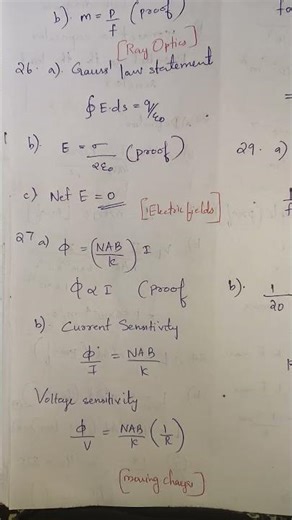 b). m = P/f (proof)
[Ray Optics]
26. a). Gauss' law statement
∮E.ds = q/ε₀
b). E = σ/2ε₀ (proof)
c) Net E = 0
[Electric fields]
27 a) ϕ = (NAB/k) I
ϕ ∝ I (proof
b) Current Sensitivity
ϕ/I = NAB/k
Voltage sensitivity
ϕ/V = NAB/k (1/R)
[moving charges]
29. a)
b). 1/20